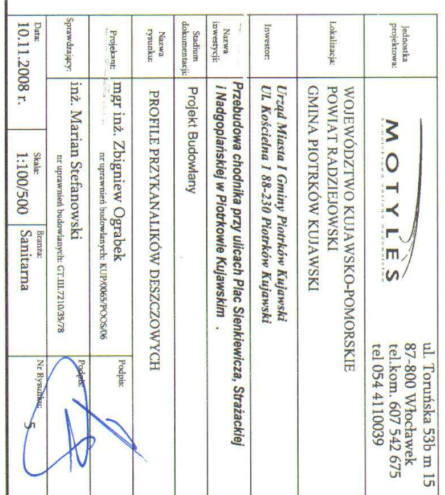 Jednostka
projektowa:
MOTYLES
ul. Toruńska 53b m 15
87-800 Włocławek
tel.kom. 607 542 675
tel 054 4110039
Lokalizacja:
WOJEWÓDZTWO KUJAWSKO-POMORSKIE
POWIAT RADZIEJOWSKI
GMINA PIOTRKÓW KUJAWSKI
Inwestor:
Urząd Miasta i Gminy Piotrków Kujawski
Ul. Kościelna 1 88-230 Piotrków Kujawski
Nazwa
inwestycji:
Przebudowa chodnika przy ulicach Plac Sienkiewicza, Strażackiej
i Nadgoplańskiej w Piotrkowie Kujawskim .
Stadium
dokumentacji:
Projekt Budowlany
Nazwa
rysunku:
PROFILE PRZYKANALIKÓW DESZCZOWYCH
Projektant:
mgr inż. Zbigniew Ograbek
nr uprawnień budowlanych: KUP/0065/POOS/06
Podpis:
Sprawdzający:
inż. Marian Stefanowski
nr uprawnień budowlanych: GT.III.7210/35/78
Podpis:
Data:
10.11.2008 r.
Skala:
1:100/500
Branża:
Sanitarna
Nr Rysunku:
5